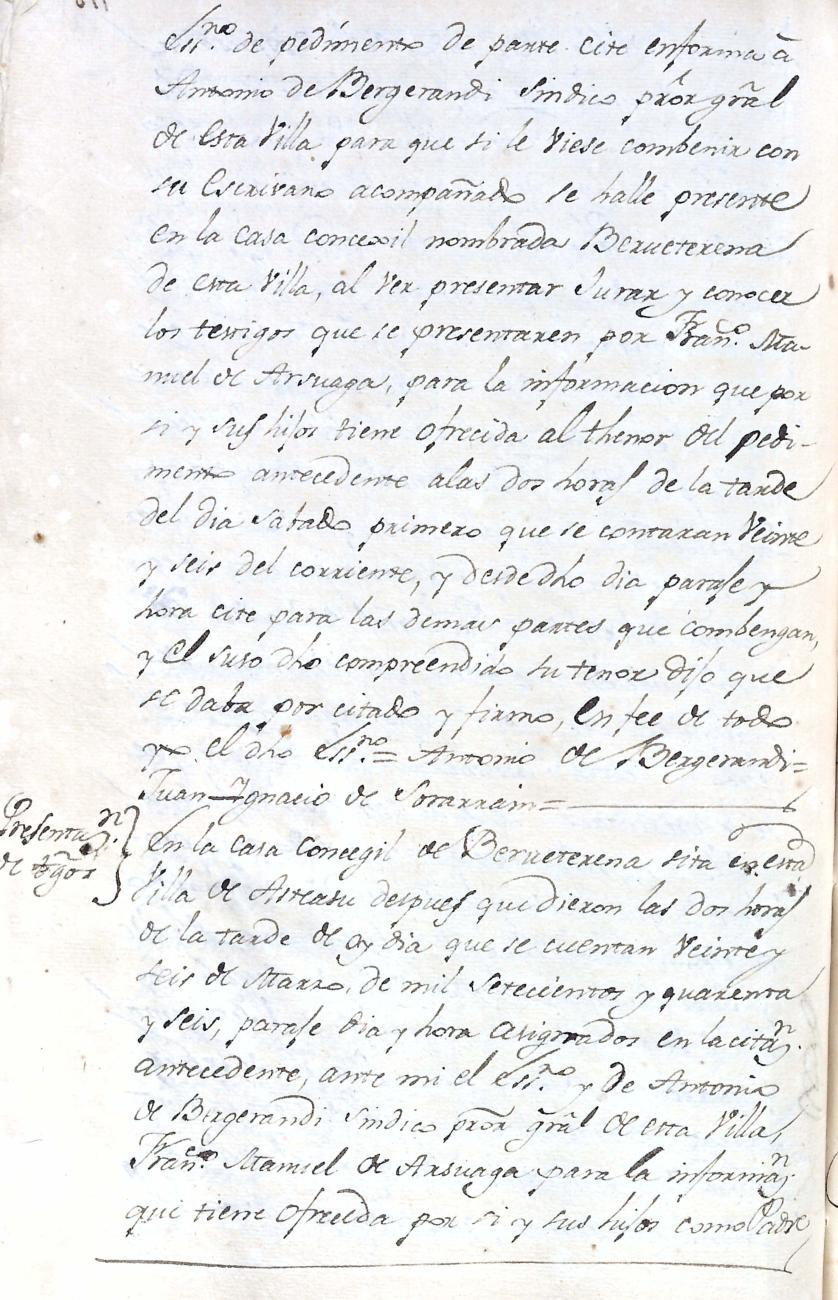 Ssno. de pedimento de parte cite enforma â
Antonio de Bergerandi Sindico pror gral
de Esta Villa para que si le Viese combenir con
su Escrivano acompañado se halle presente
en la casa concexil nombrada Berueterena
de esta Villa, al Ver presentar Jurar y conocer
los testigos que se presentaren por Franco. Ma-
nuel de Arsuaga, para la informacion que por
si y sus hijos tiene ofrecida al thenor del pedi-
mento antecedente alas dos horas de la tarde
del dia sabado primero que se contaran Veinte
y seis del corriente, y desde dho dia paraje y
hora cite para las demas partes que combengan,
y El suso dho compreendido su tenor dijo que
se daba por citado y firmo, En fee de todo
yo el dho Ssno. = Antonio de Bergerandi =
Juan Ignacio de Sorarrain =
Presentan.
de tgos
En la Casa Concegil de Berueterena sita en esta
Villa de Asteasu despues que dieron las dos horas
de la tarde de oy dia que se cuentan Veinte y
seis de Marzo, de mil setecientos y quarenta
y seis, paraje dia y hora asignados en la citan.
antecedente, ante mi el Ssno. y de Antonio
de Bergerandi Sindico pror gral de esta Villa,
Franco. Manuel de Arsuaga para la informan.
que tiene ofrecida por si y sus hijos como Padre